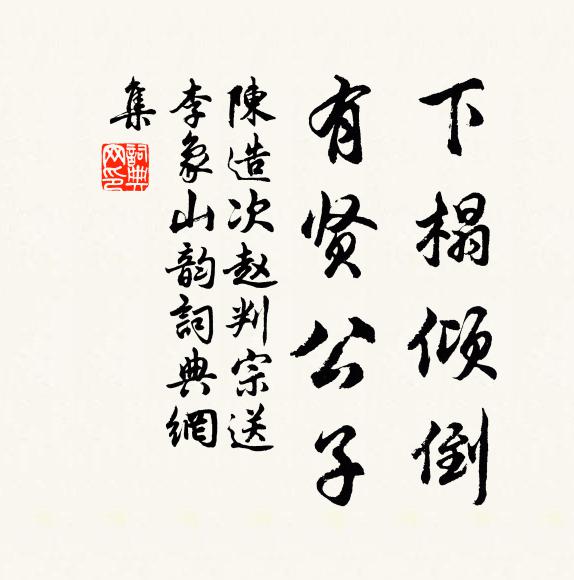 下榻倾倒
有贤公子
陳造次赵判宗送
李象山韵詞典網
集
詞典网印